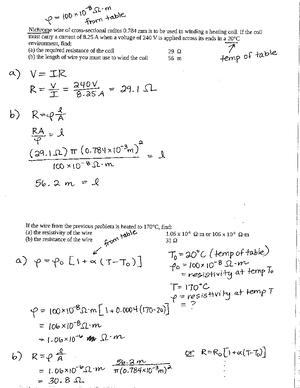 ρ = 100×10⁻⁸ Ω·m
from table
Nichrome wire of cross-sectional radius 0.784 mm is to be used in winding a heating coil. If the coil
must carry a current of 8.25 A when a voltage of 240 V is applied across its ends in a 20°C
environment, find:
(a) the required resistance of the coil 29 Ω
(b) the length of wire you must use to wind the coil 56 m
temp of table
a) V = IR
R = V/I = 240V/8.25A = 29.1 Ω
b) R = ρ l/A
RA/ρ = l
(29.1Ω) π (0.784×10⁻³m)² / 100×10⁻⁸ Ω·m = l
56.2 m = l
If the wire from the previous problem is heated to 170°C, find:
(a) the resistivity of the wire 1.06 x 10⁻⁶ Ω·m or 106 x 10⁻⁸ Ω·m
(b) the resistance of the wire 31 Ω
from table
a) ρ = ρ₀ [1 + α(T-T₀)]
T₀ = 20°C (temp of table)
ρ₀ = 100×10⁻⁸ Ω·m
= resistivity at temp T₀
T = 170°C
ρ = resistivity at temp T
= ?
ρ = 100×10⁻⁸ Ω·m [1 + 0.0004 (170-20)]
= 106×10⁻⁸ Ω·m
= 1.06×10⁻⁶ Ω·m
b) R = ρ l/A
= 1.06×10⁻⁶ Ω·m 56.2 m / π(0.784×10⁻³m)²
= 30.8 Ω
or R = R₀[1+α(T-T₀)]